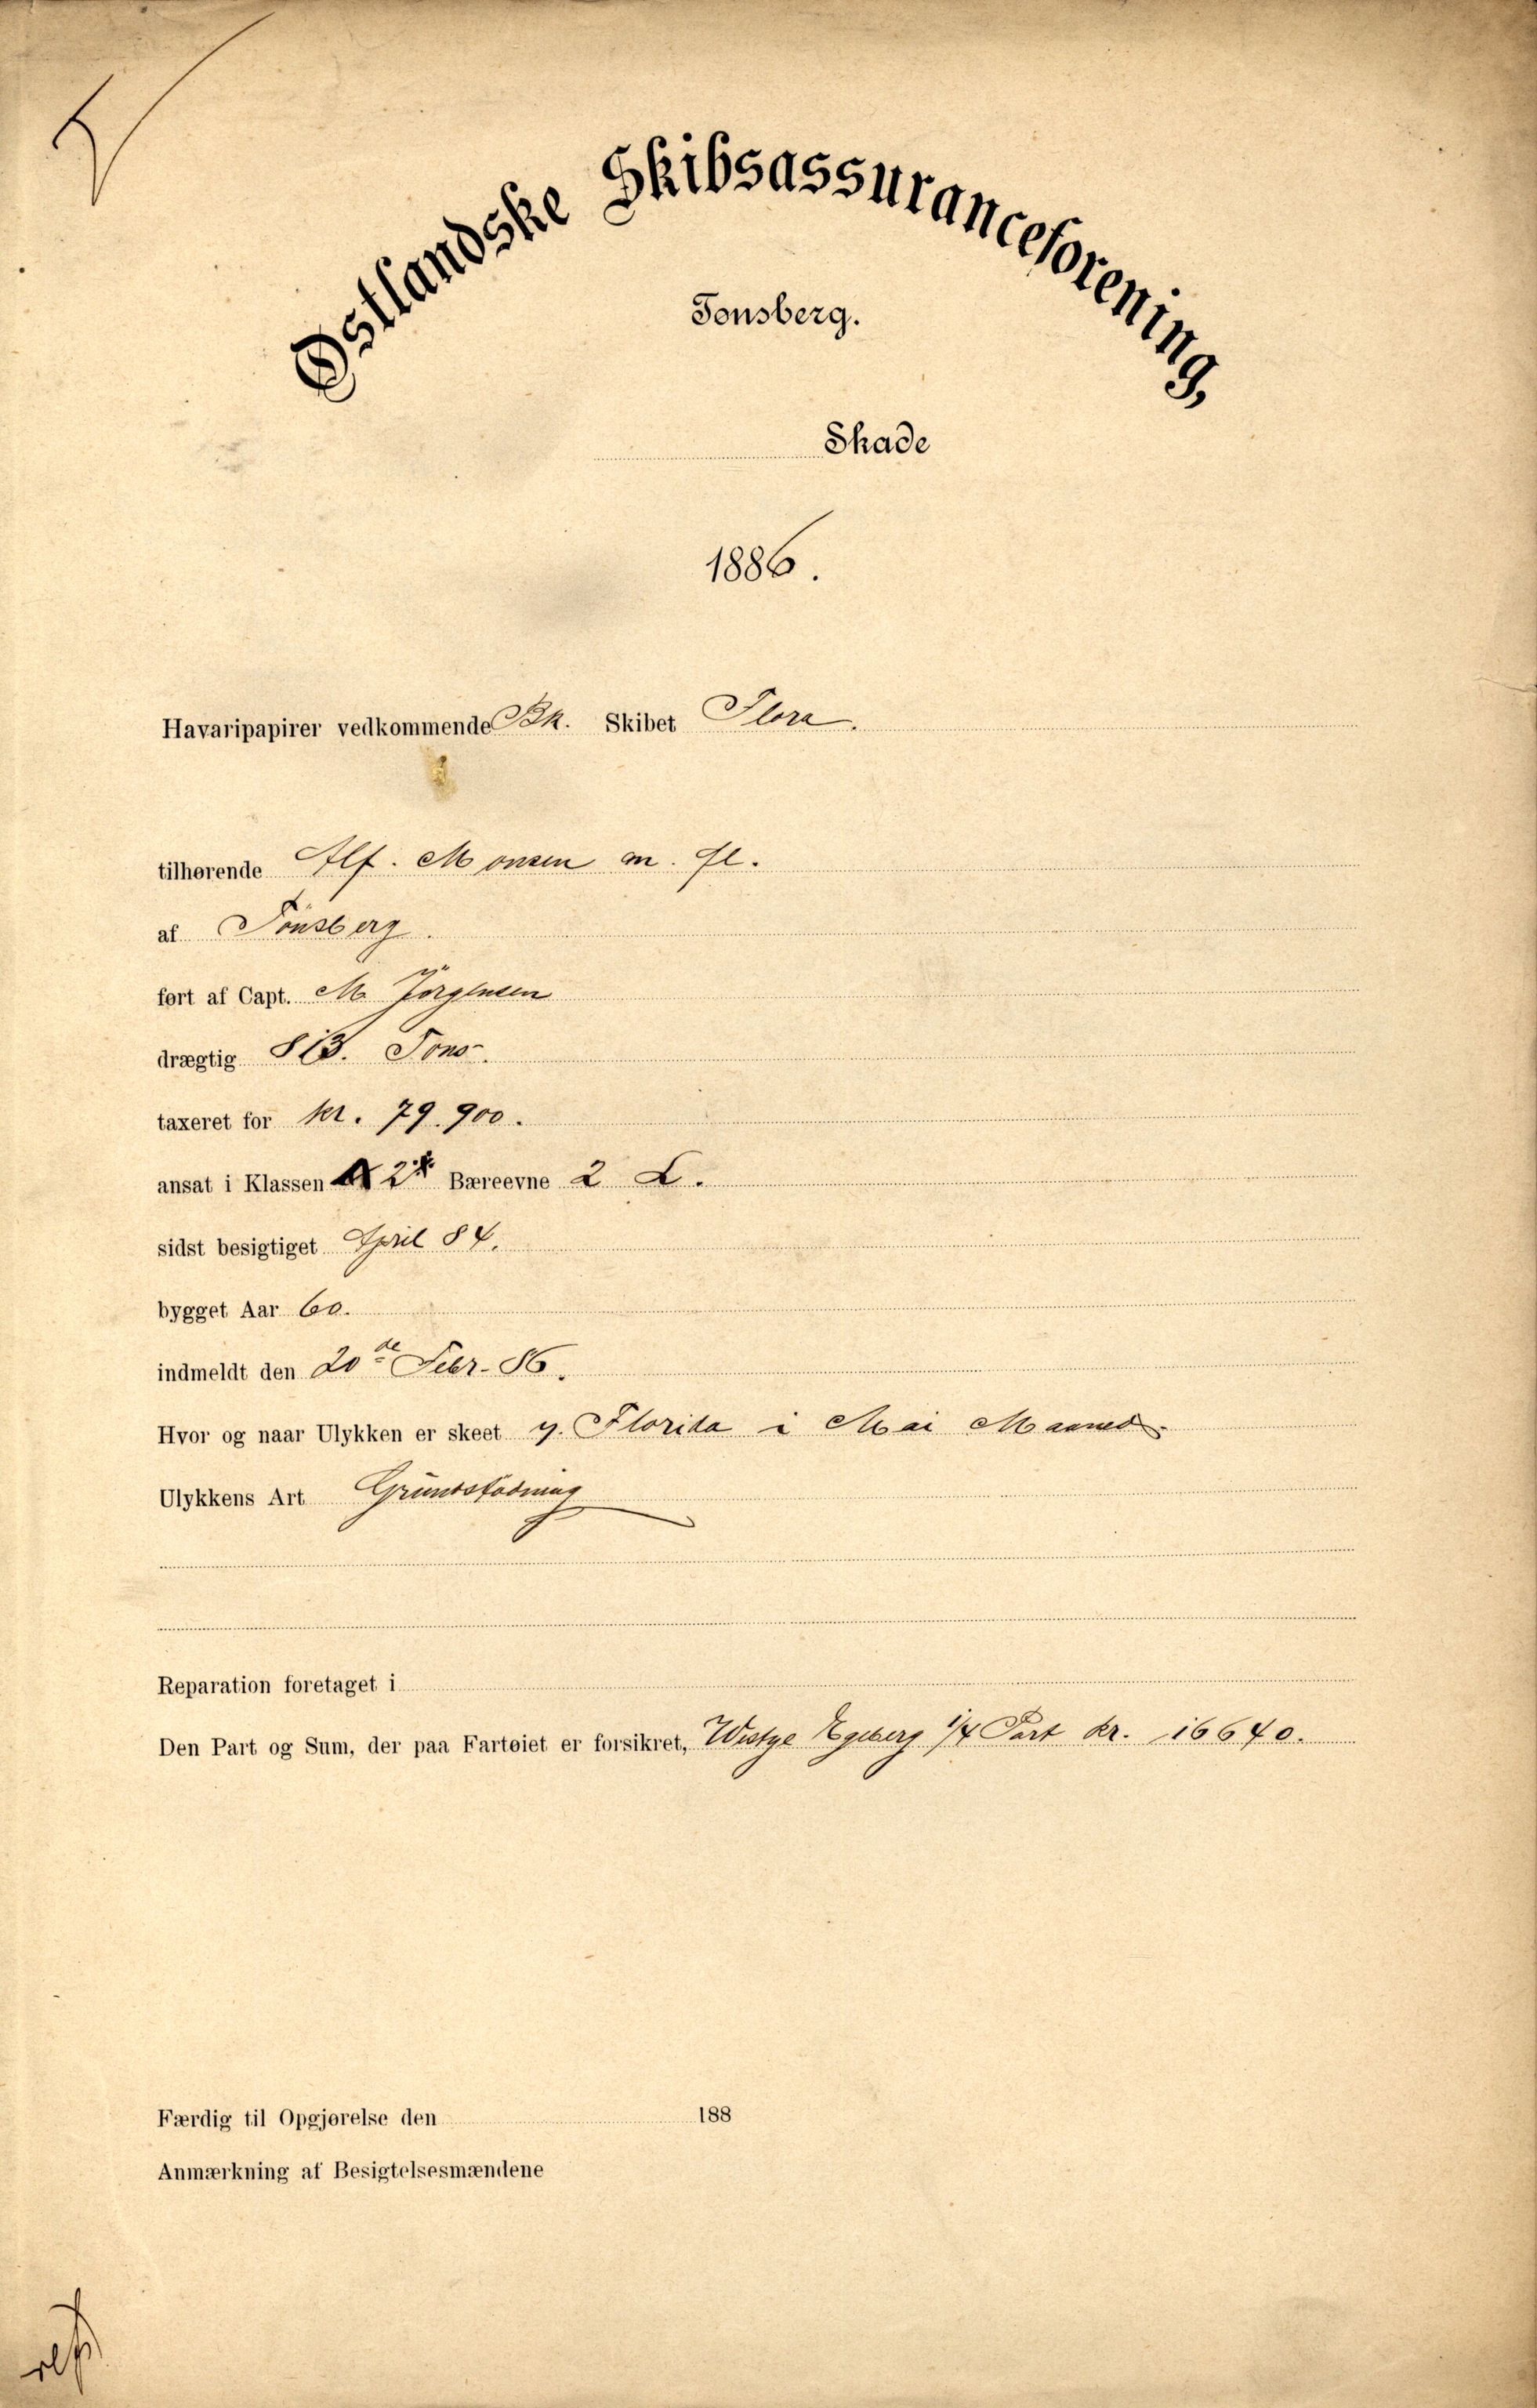 Østlandske Skibsassuranceforening,
Tønsberg.
Skade
1886.
Havaripapirer vedkommende Bk. Skibet Flora.
tilhørende Alf. Monsen m. fl.
af Tönsberg.
ført af Capt. M. Jörgensen
drægtig 813. Tons.
taxeret for kr. 79.900.
ansat i Klassen 2 Bæreevne 2 L.
sidst besigtiget April 84.
bygget Aar 60.
indmeldt den 20de Febr. 86.
Hvor og naar Ulykken er skeet v. Florida i Mai Maaned.
Ulykkens Art Grundstödning
Reparation foretaget i
Den Part og Sum, der paa Fartøiet er forsikret, Westye Egeberg 1/4 Part kr. 16640.
Færdig til Opgjørelse den 188
Anmærkning af Besigtelsesmændene